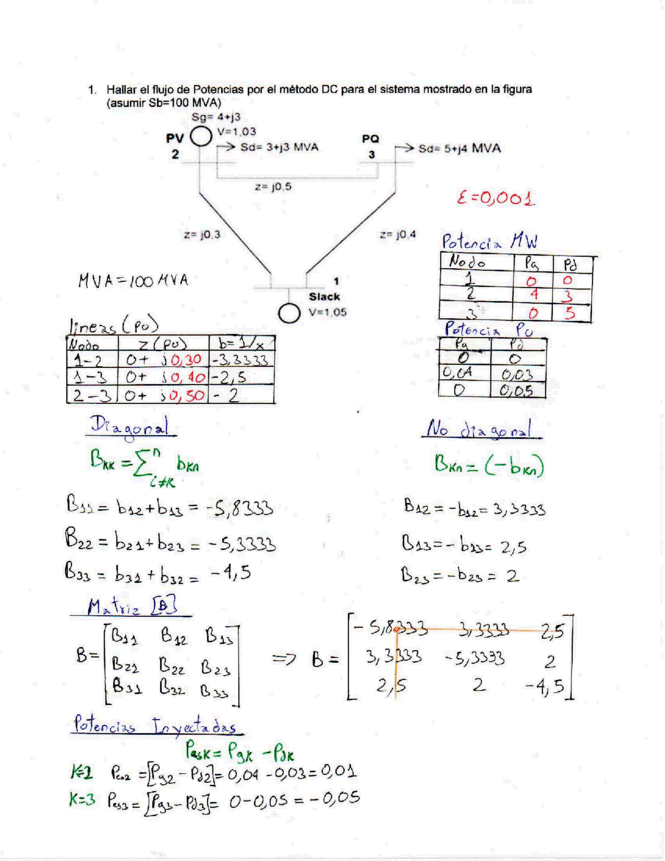 1. Hallar el flujo de Potencias por el método DC para el sistema mostrado en la figura
(asumir Sb=100 MVA)
Sg= 4+j3
PV V=1,03
2 Sd= 3+j3 MVA
PQ
3 Sd= 5+j4 MVA
z= j0,5
ε=0,001
z= j0,3
z= j0,4
Potencia MW
Nodo Pg Pd
1 0 0
2 4 3
3 0 5
MVA=100 MVA
1
Slack
V=1,05
lineas (pu)
Nodo z (PU) b=1/x
1-2 0+ j0,30 -3,3333
1-3 0+ j0,40 -2,5
2-3 0+ j0,50 -2
Potencia Pu
Pg Pd
0 0
0,04 0,03
0 0,05
Diagonal
No diagonal
Bkk = Σ n i≠k bkn
Bkn = (-bkn)
B11 = b12+b13 = -5,8333
B12 = -b12= 3,3333
B22 = b21+b23 = -5,3333
B13=-b13= 2,5
B33 = b31+b32 = -4,5
B23=-b23= 2
Matriz [B]
B= [B11 B12 B13
B21 B22 B23
B31 B32 B33]
=> B = [-5,8333 3,3333 2,5
3,3333 -5,3333 2
2,5 2 -4,5]
Potencias Inyectadas
Pesk= Pgk - Pdk
K=2 Pes2 =[Pg2-Pd2]= 0,04 -0,03=0,01
K=3 Pes3 = [Pg3-Pd3]= 0-0,05 = -0,05